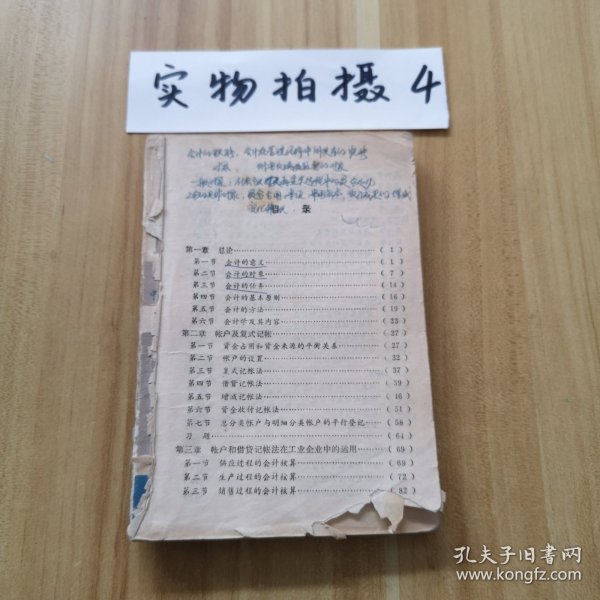 实物拍摄 4
会计的职能，会计在管理
对象
一般对象
目录
第一章 总论……(1)
第一节 会计的意义……(1)
第二节 会计的对象……(7)
第三节 会计的任务……(14)
第四节 会计的基本原则……(16)
第五节 会计的方法……(19)
第六节 会计学及其内容……(23)
第二章 帐户及复式记帐……(27)
第一节 资金占用和资金来源的平衡关系……(27)
第二节 帐户的设置……(32)
第三节 复式记帐法……(37)
第四节 借贷记帐法……(39)
第五节 增减记帐法……(46)
第六节 资金收付记帐法……(51)
第七节 总分类帐户与明细分类帐户的平行登记……(58)
习题……(64)
第三章 帐户和借贷记帐法在工业企业中的运用……(69)
第一节 供应过程的会计核算……(69)
第二节 生产过程的会计核算……(72)
第三节 销售过程的会计核算……(82)
孔夫子旧书网
www.kongfz.com